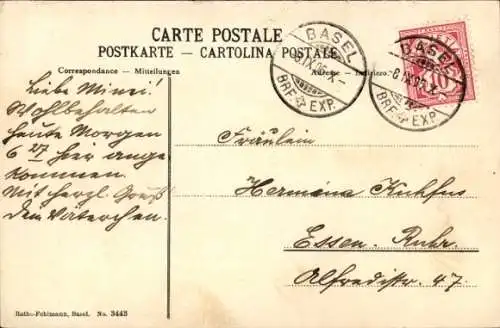 CARTE POSTALE
POSTKARTE — CARTOLINA POSTALE
Correspondance — Mitteilungen
Adresse — Indirizzo
BASEL
8.IX.06.X-
BRF. EXP.
BASEL
8.IX.06.X-
BRF. EXP.
10
Liebe Minni!
Wohlbehalten
heute Morgen
6 27 hier ange
kommen.
Mit herzl. Gruß
dem Väterchen.
Fräulein
Hermina Kuhfus
Essen. Ruhr.
Alfredistr. 47.
Rathe-Fehlmann, Basel. No. 3443